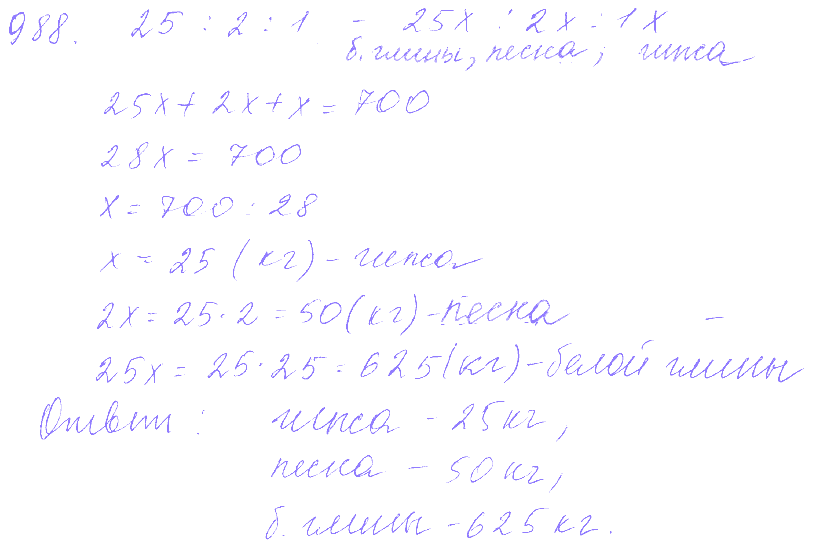 988. 25 : 2 : 1 - 25x : 2x : 1x
б. глины, песка, гипса
25x + 2x + x = 700
28x = 700
x = 700 : 28
x = 25 (кг) - гипса
2x = 25 · 2 = 50 (кг) - песка
25x = 25 · 25 = 625 (кг) - белой глины
Ответ : гипса - 25 кг,
песка - 50 кг,
б. глины - 625 кг.